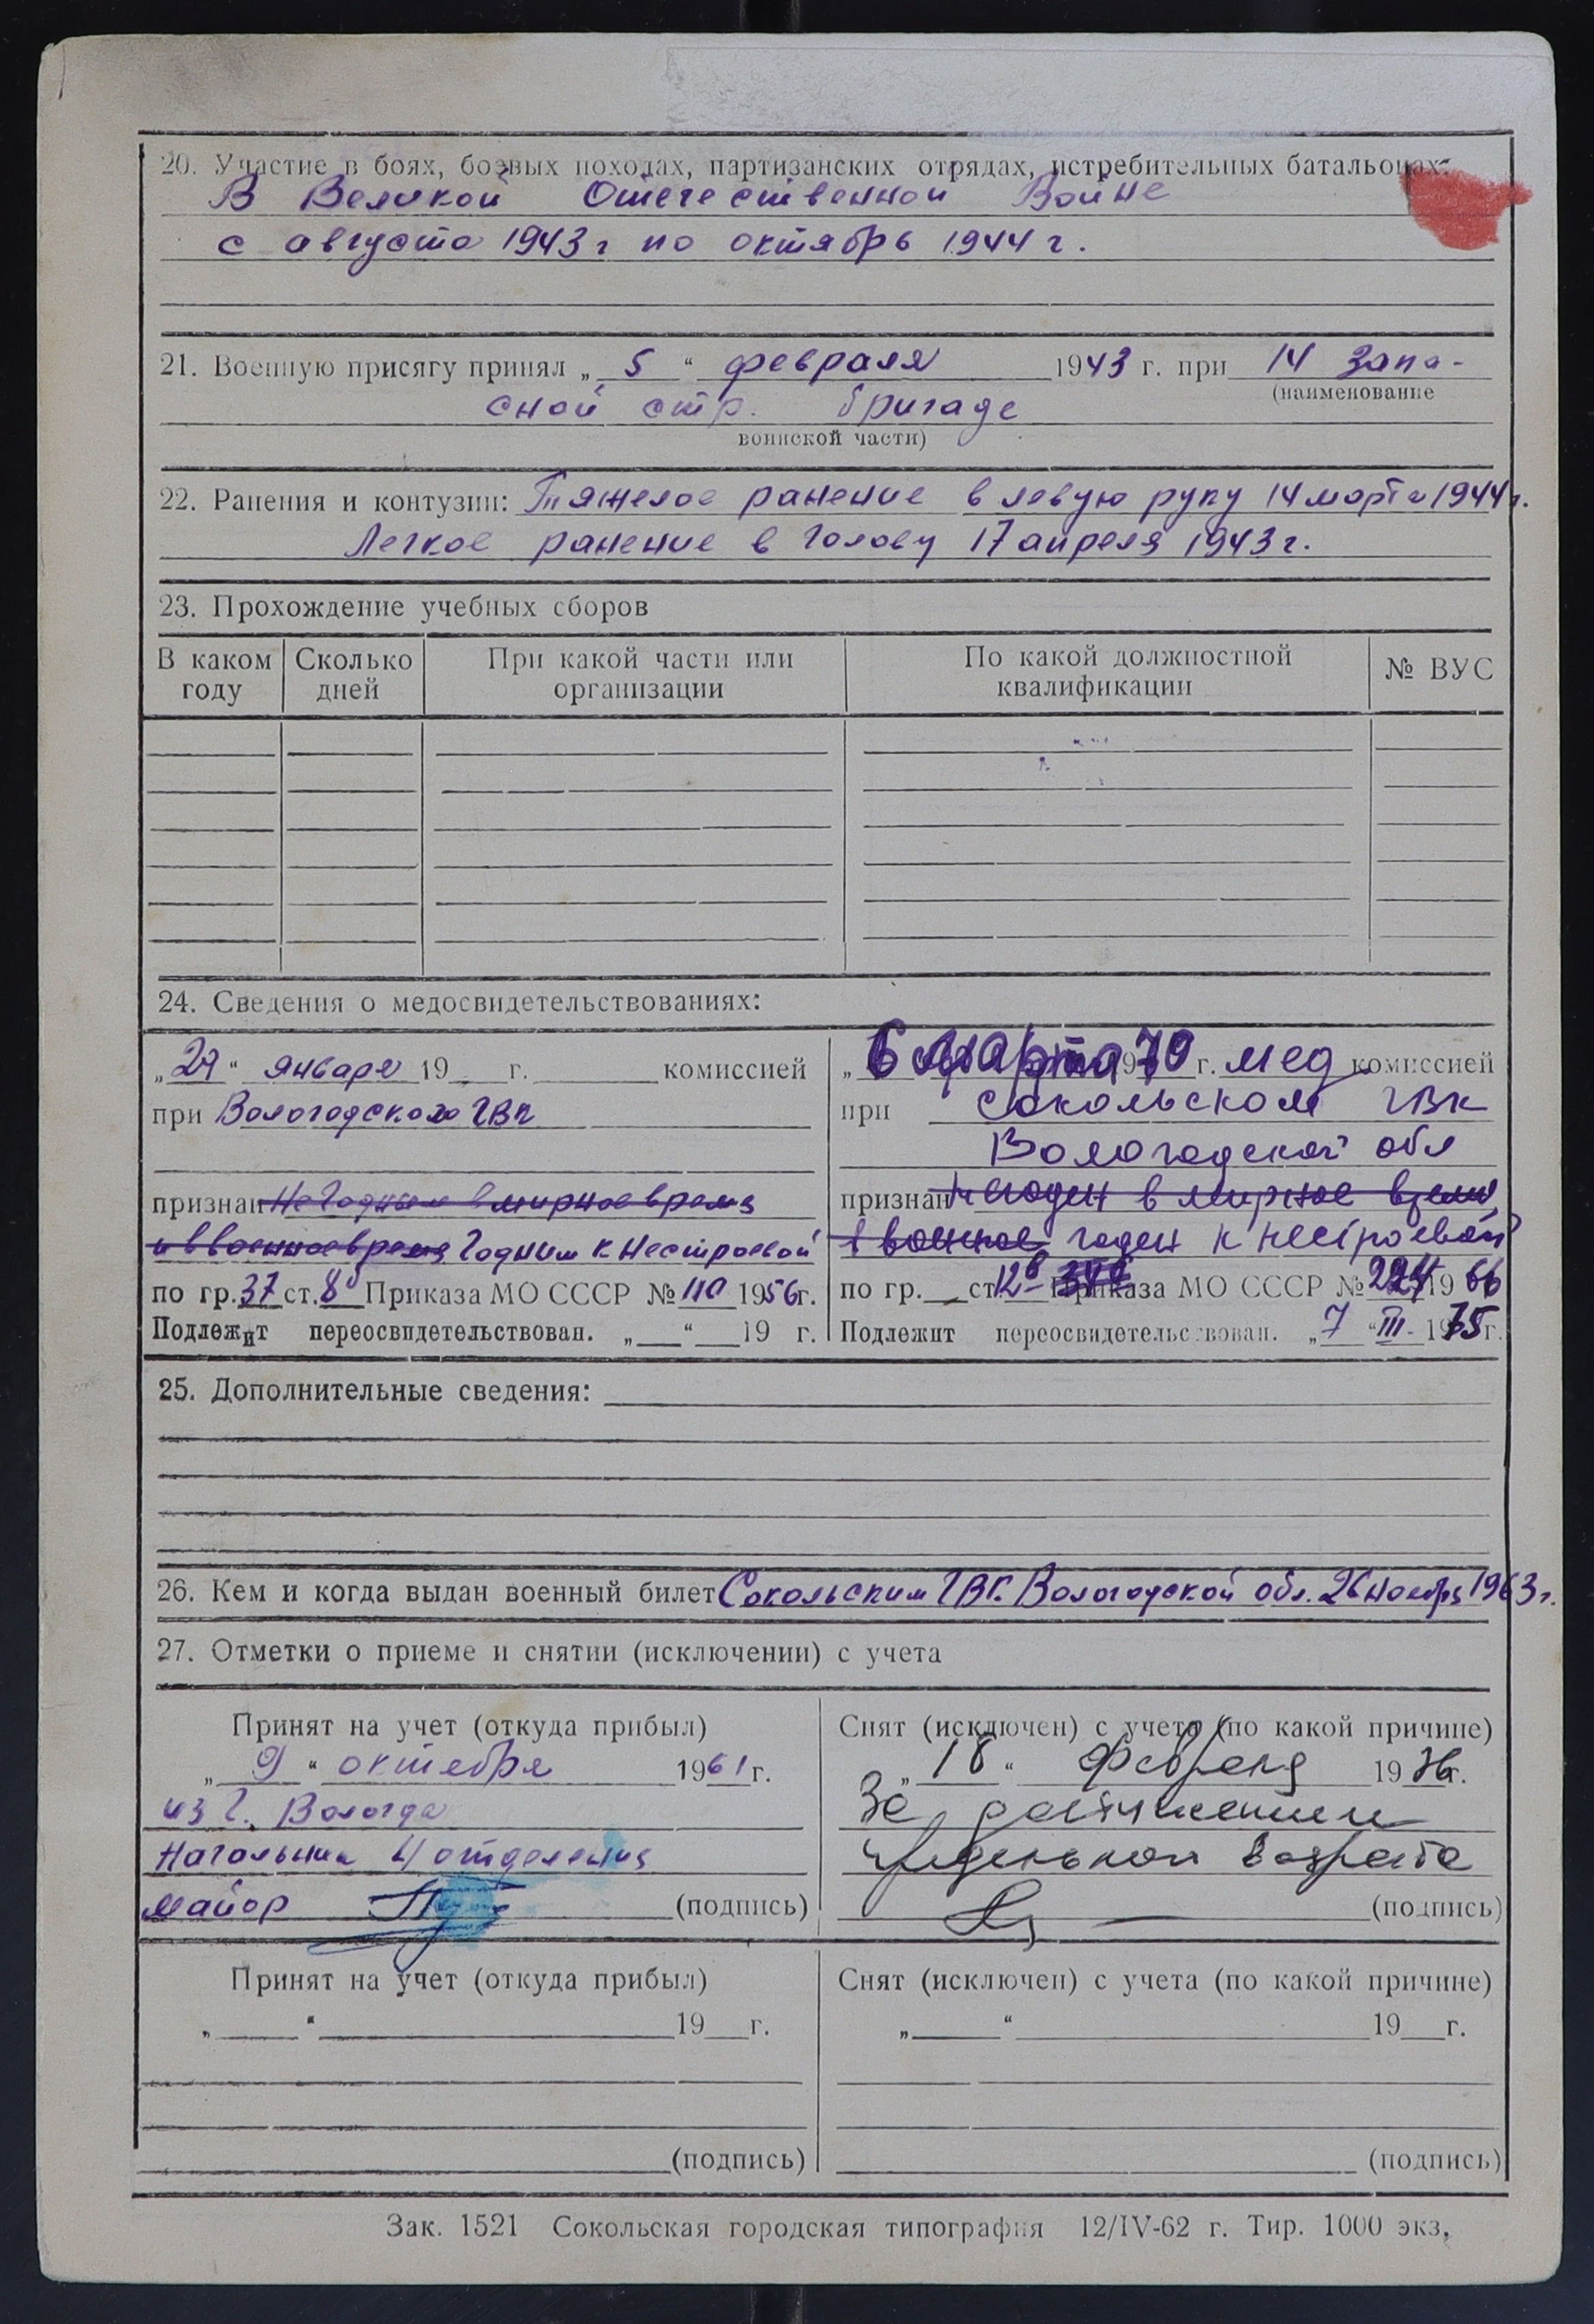 20. Участие в боях, боевых походах, партизанских отрядах, истребительных батальонах:
В Великой Отечественной Войне
с августа 1943 г по октябрь 1944 г.
21. Военную присягу принял „ 5 “ февраля 1943 г. при 14 запа-
(наименование
сной стр. бригаде
воинской части)
22. Ранения и контузии: Тяжелое ранение в левую руку 14 марта 1944 г.
Легкое ранение в голову 17 апреля 1943 г.
23. Прохождение учебных сборов
В каком году Сколько дней При какой части или организации По какой должностной квалификации № ВУС
24. Сведения о медосвидетельствованиях:
„ “ января 19 г. комиссией
при Вологодского ГВК
признан Негодным в мирное время
и в военное время Годным к нестроевой
по гр. 37 ст. 8 Приказа МО СССР № 110 1956 г.
Подлежит переосвидетельствован. „ “ 19 г.
„ 6 марта 1970 г. мед комиссией
при Сокольском ГВК
Вологодской обл
признан Негоден в мирное время,
в военное годен к нестроевой
по гр. ст 12б Приказа МО СССР № 224 1966
Подлежит переосвидетельствован. „ 7 “ III - 1975 г.
25. Дополнительные сведения:
26. Кем и когда выдан военный билет Сокольским ГВК Вологодской обл. 26 ноября 1963 г.
27. Отметки о приеме и снятии (исключении) с учета
Принят на учет (откуда прибыл)
„ 9 “ октября 1961 г.
из г. Вологда
Начальник 4 отделения
майор (подпись)
Снят (исключен) с учета (по какой причине)
„ 18 “ февраля 1976 г.
За достижением
предельного возраста
(подпись)
Принят на учет (откуда прибыл)
„ “ 19 г.
(подпись)
Снят (исключен) с учета (по какой причине)
„ “ 19 г.
(подпись)
Зак. 1521 Сокольская городская типография 12/IV-62 г. Тир. 1000 экз,